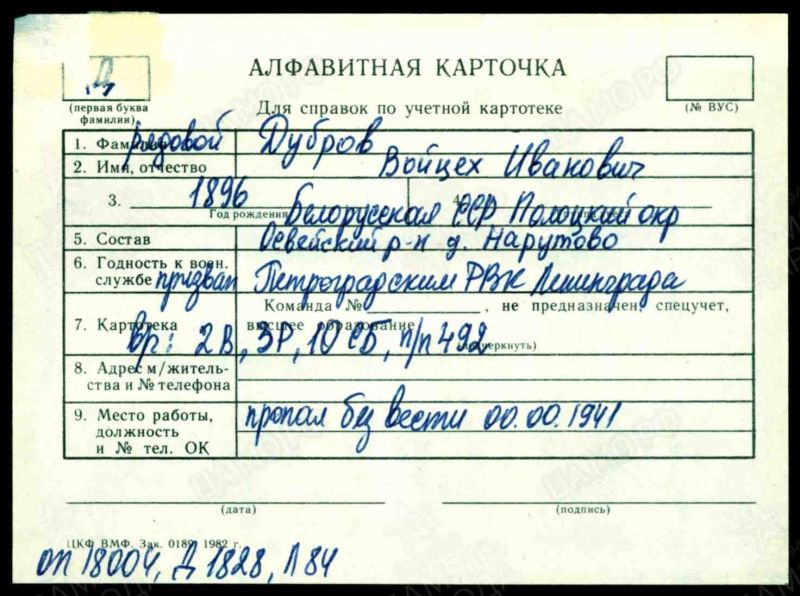 Д
АЛФАВИТНАЯ КАРТОЧКА
(первая буква фамилии)
Для справок по учетной картотеке
(№ ВУС)
1. Фамилия рядовой Дубров
2. Имя, отчество Войцех Иванович
3. 1896 4.
Год рождения Белорусская ССР Полоцкий окр
5. Состав Освейский р-н д. Нарутово
6. Годность к воен. службе призван Петроградским РВК Ленинграда
Команда №, не предназначен, спецучет,
7. Картотека высшее образование
вр: 2В, ЗР, 10 СБ, п/п 492
(подчеркнуть)
8. Адрес м/жительства и № телефона
9. Место работы, пропал без вести 00.00.1941
должность
и № тел. ОК
(дата) (подпись)
ЦКФ ВМФ. Зак. 0189, 1982 г.
оп 18004, Д 1828, Л 84